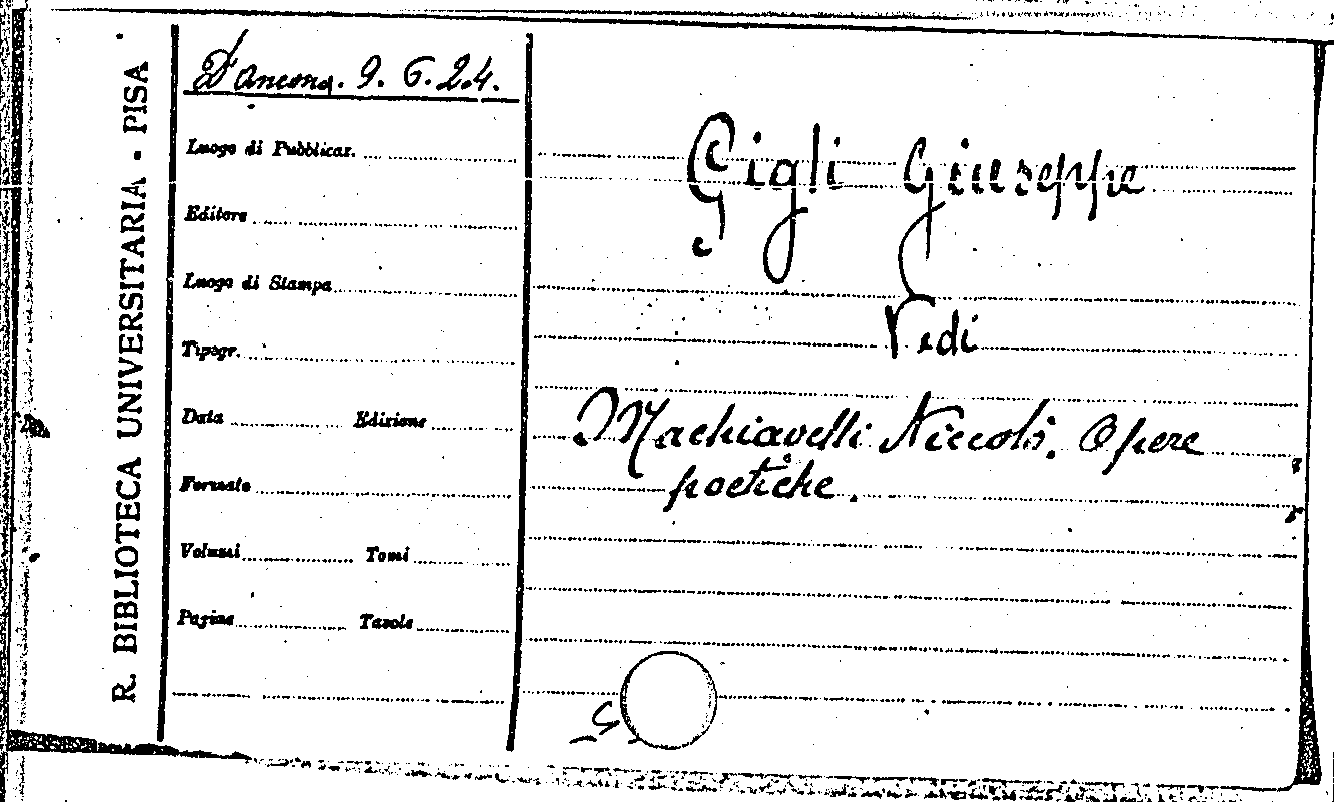 R. BIBLIOTECA UNIVERSITARIA - PISA
D'Ancona. 9. 6. 24.
Luogo di Pubblicaz.
Editore
Luogo di Stampa
Tipogr.
Data Edizione
Formato
Volumi Tomi
Pagine Tavole
Gigli Giuseppe
Vedi
Machiavelli Niccolò. Opere
poetiche.